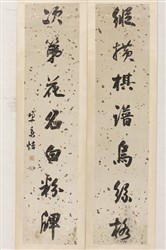 縱橫棋譜烏絲格
次第花名白粉牌